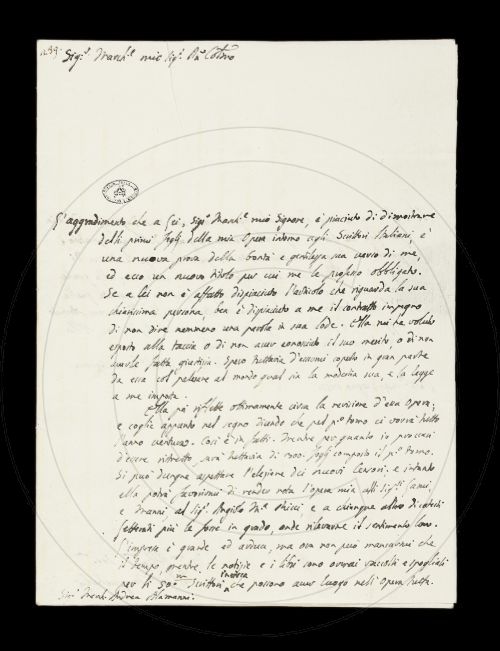 Sig.r March.e mio Sig.r P.ne Col.mo
L'aggradimento che a Lei, Sig.r March.e mio Signore, è piaciuto di dimostrarmi
delli primi fogli della mia Opera intorno agli Scrittori Italiani, è
una nuova prova della bontà e gentilezza sua verso di me,
ed ecco un nuovo titolo per cui me le professo obbligato.
Se a Lei non è affatto dispiaciuto l'articolo che riguarda la sua
chiarissima persona, ben è dispiaciuto a me il contratto impegno
di non dire nemmeno una parola in sua lode. Ella mi ha voluto
esposto alla taccia o di non aver conosciuto il suo merito, o di non
avergli fatta giustizia. Spero tuttavia d'essermi coperto in gran parte
da essa col palesare al mondo qual sia la modestia sua, e la legge
a me imposta.
Ella poi riflette ottimamente circa la revisione d'essa Opera;
e coglie appunto nel segno dicendo che pel p.o tomo ci vorrà tutto
l'anno venturo. Così è in fatti. Mentre per quanto io procuri
d'essere ristretto sarà tuttavia di fogli composto il p.o tomo.
Si può dunque aspettare l'elezione dei nuovi e intanto
ella potrà favorirmi di render nota l'opera mia alli Sig.ri Lami,
e Manni al Sig.r e a chiunque altro di cotesti
Letterati più le fosse in grado, onde rilevarne il sentimento loro.
L'impresa è grande ed ardua, ma ora non può mancarmi che
il tempo, mentre le notizie e i libri sono ormai raccolti e spogliati
per li 50.m Scrittori incirca che possono aver luogo nell'Opera tutta.
Sig.r March. Andrea Alamanni